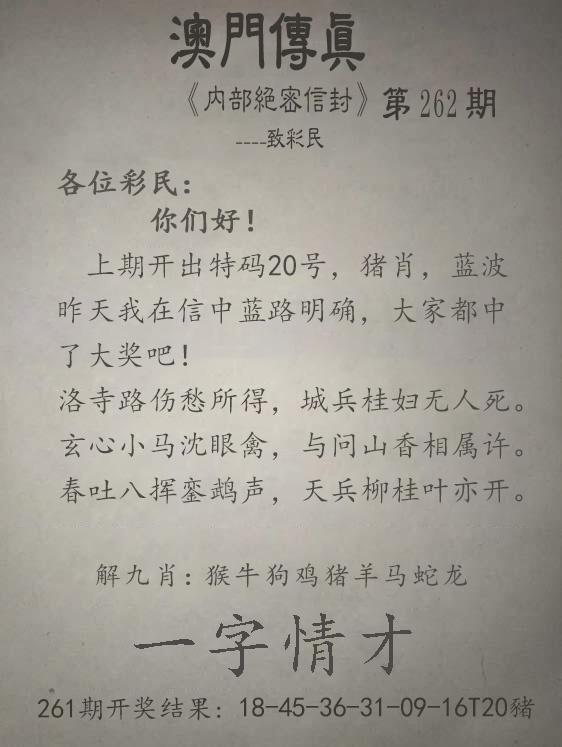 澳門傳真
《内部絕密信封》第262期
----致彩民
各位彩民：
你们好！
上期开出特码20号，猪肖，蓝波
昨天我在信中蓝路明确，大家都中
了大奖吧！
洛寺路伤愁所得，城兵桂妇无人死。
玄心小马沈眼禽，与问山香相属许。
春吐八挥銮鹉声，天兵柳桂叶亦开。
解九肖：猴牛狗鸡猪羊马蛇龙
一字情才
261期开奖结果：18-45-36-31-09-16T20豬